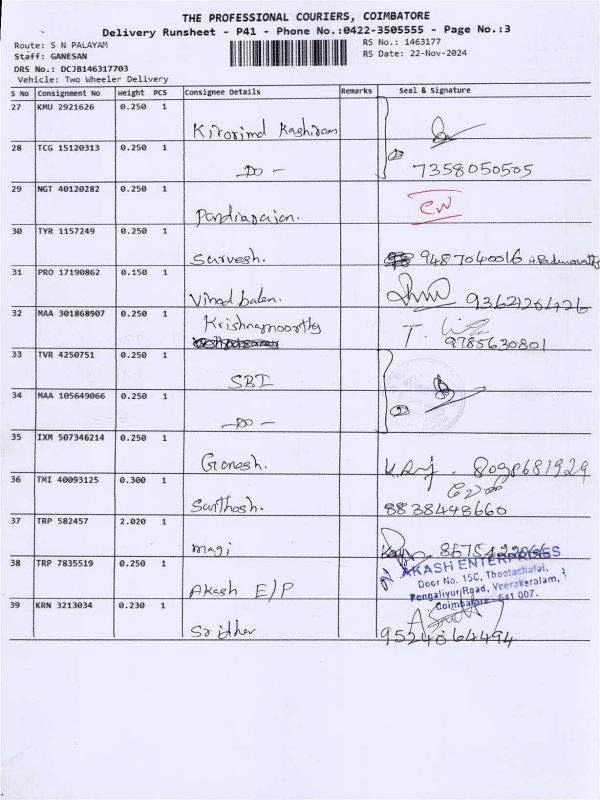 THE PROFESSIONAL COURIERS, COIMBATORE
Delivery Runsheet - P41 - Phone No.:0422-3505555 - Page No.:3
Route: S N PALAYAM
Staff: GANESAN
DRS No.: DCJB146317703
Vehicle: Two Wheeler Delivery
RS No.: 1463177
RS Date: 22-Nov-2024
S No Consignment No Weight PCS Consignee Details Remarks Seal & Signature
27 KMU 2921626 0.250 1
28 TCG 15120313 0.250 1 -DO- 7358050505
29 NGT 40120282 0.250 1 Pandiarajan.
30 TYR 1157249 0.250 1 Sarvesh. 9487040016
31 PRO 17190862 0.150 1 Vinod balan.
32 MAA 301868907 0.250 1 Krishnamoorthy 9785630801
33 TVR 4250751 0.250 1 SBI
34 MAA 105649066 0.250 1 -DO-
35 IXM 507346214 0.250 1 Ganesh.
36 TMI 40093125 0.300 1 Santhosh. 8838448660
37 TRP 582457 2.020 1 magi
38 TRP 7835519 0.250 1 Akash E/P
AKASH ENTERPRISES
Door No. 15C, Thootachalai,
Pongaliyur Road, Veerakeralam,
Coimbatore - 641 007.
39 KRN 3213034 0.230 1 Sridher